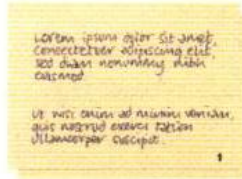 Lorem ipsum dolor sit amet,
consectetuer adipiscing elit,
sed diam nonummy nibh
euismod.
Ut wisi enim ad minim veniam,
quis nostrud exerci tation
ullamcorper suscipit.
1